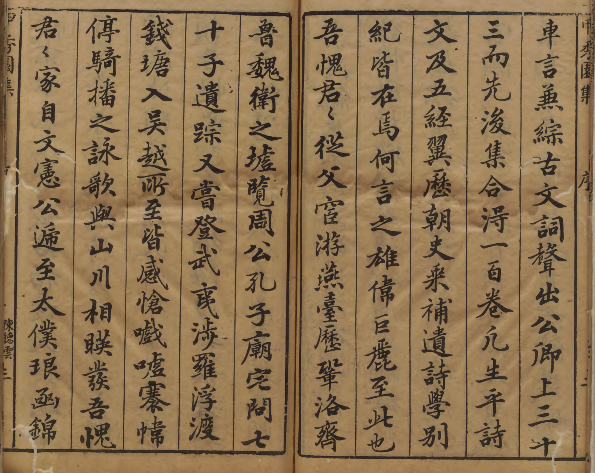 車言兼綜古文詞聲出公卿上三十
三而先後集合淂一百卷凢生平詩
文及五經翼歷朝史来補遺詩學別
紀皆在焉何言之雄偉巨麗至此也
吾愧君〻從父宦游燕臺歷鞏洛齊
魯魏衛之墟覽周公孔子廟宅問七
十子遺踪又嘗登武夷涉羅浮渡
錢塘入吳越所至皆感愴嘅嘘褰帷
停騎播之詠歌與山川相暎發吾愧
君〻家自文憲公遞至太僕琅函錦
西秀園集
序
西秀園集